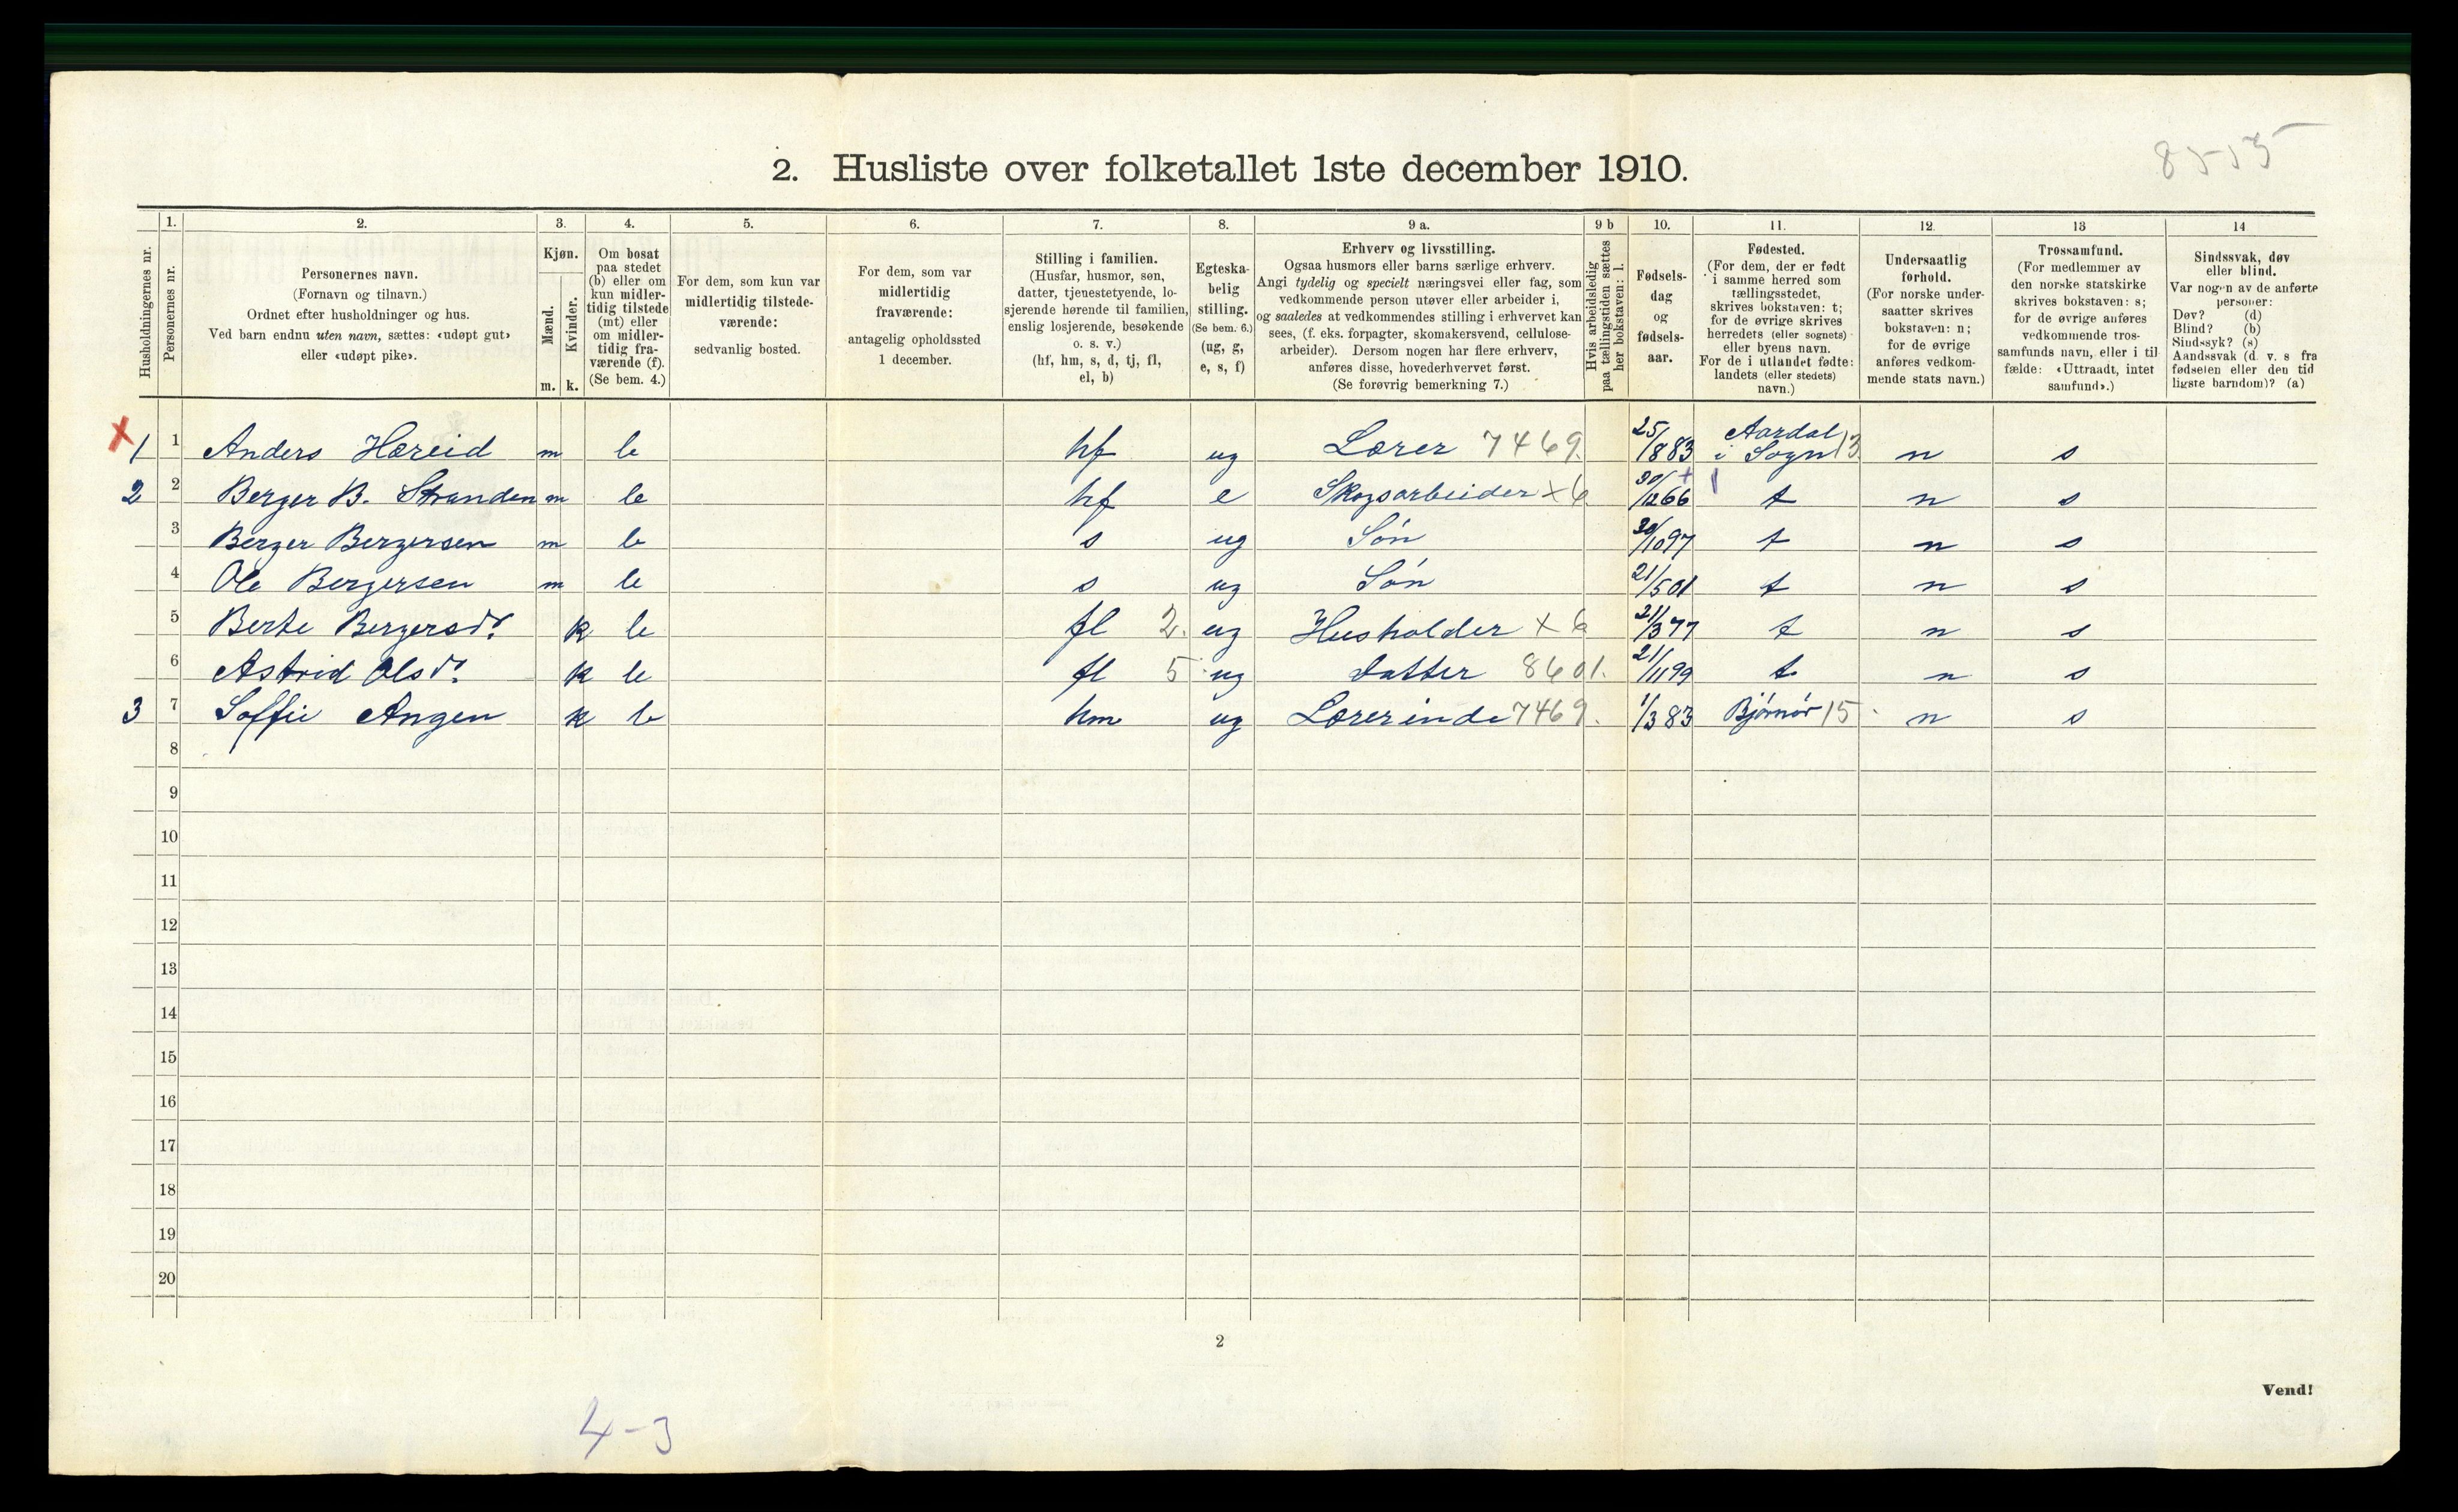 8555
2. Husliste over folketallet 1ste december 1910.
Husholdningernes nr.
1.
Personernes nr.
2.
Personernes navn.
(Fornavn og tilnavn.)
Ordnet efter husholdninger og hus.
Ved barn endnu uten navn, sættes: «udøpt gut»
eller «udøpt pike».
3.
Kjøn.
Mænd.
Kvinder.
m. k.
4.
Om bosat
paa stedet
(b) eller om
kun midler-
tidig tilstede
(mt) eller
om midler-
tidig fra-
værende (f).
(Se bem. 4.)
5.
For dem, som kun var
midlertidig tilstede-
værende:
sedvanlig bosted.
6.
For dem, som var
midlertidig
fraværende:
antagelig opholdssted
1 december.
7.
Stilling i familien.
(Husfar, husmor, søn,
datter, tjenestetyende, lo-
sjerende hørende til familien,
enslig losjerende, besøkende
o. s. v.)
(hf, hm, s, d, tj, fl,
el, b)
8.
Egteska-
belig
stilling.
(Se bem. 6.)
(ug, g,
e, s, f)
9 a.
Erhverv og livsstilling.
Ogsaa husmors eller barns særlige erhverv.
Angi tydelig og specielt næringsvei eller fag, som
vedkommende person utøver eller arbeider i,
og saaledes at vedkommendes stilling i erhvervet kan
sees, (f. eks. forpagter, skomakersvend, cellulose-
arbeider). Dersom nogen har flere erhverv,
anføres disse, hovederhvervet først.
(Se forøvrig bemerkning 7.)
9 b
Hvis arbeidsledig
paa tællingstiden sættes
her bokstaven: l.
10.
Fødsels-
dag
og
fødsels-
aar.
11.
Fødested.
(For dem, der er født
i samme herred som
tællingsstedet,
skrives bokstaven: t;
for de øvrige skrives
herredets (eller sognets)
eller byens navn.
For de i utlandet fødte:
landets (eller stedets)
navn.)
12.
Undersaatlig
forhold.
(For norske under-
saatter skrives
bokstaven: n;
for de øvrige
anføres vedkom-
mende stats navn.)
13
Trossamfund.
(For medlemmer av
den norske statskirke
skrives bokstaven: s;
for de øvrige anføres
vedkommende tros-
samfunds navn, eller i til
fælde: «Uttraadt, intet
samfund».)
14
Sindssvak, døv
eller blind.
Var nogen av de anførte
personer:
Døv? (d)
Blind? (b)
Sindssyk? (s)
Aandssvak (d. v. s fra
fødselen eller den tid
ligste barndom)? (a)
X 1 1 Anders Hæreid m b hf ug Lærer 7469. 25/8 83 Aardal i Sogn 13 n s
2 2 Berger B. Stranden m b hf e Skogsarbeider x6 30/12 66 t n s
3 Berger Bergersen m b s ug Søn 30/10 97 t n s
4 Ole Bergersen m b s ug Søn 21/5 01 t n s
5 Berte Bergersdr. k b fl 2. ug Husholder x6 21/3 77 t n s
6 Astrid Olsdr. k b fl 5 ug datter 8601. 21/11 99 t n s
3 7 Soffie Angen k b hm ug Lærerinde 7469. 1/3 83 Bjørnør 15 n s
8
9
10
11
12
13
14
15
16
17
18
19
20
2
Vend!
4-3